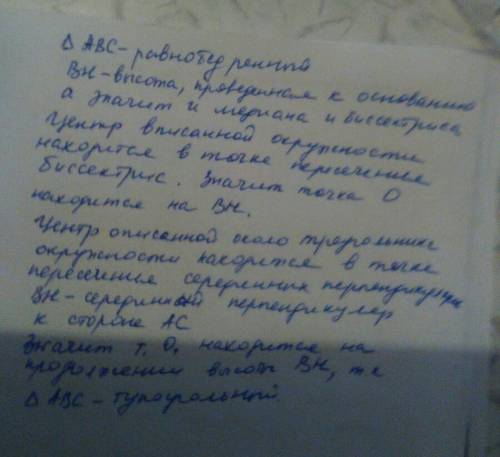 Δ ABC - равнобедренный
BH - высота, проведенная к основанию
а значит и медиана и биссектриса
Центр вписанной окружности
находится в точке пересечения
биссектрис. Значит точка O
находится на BH.
Центр описанной около треугольника
окружности находится в точке
пересечения серединных перпендикуляров
BH - серединный перпендикуляр
к стороне AC
Значит т. O, находится на
продолжении высоты BH, тк
Δ ABC - тупоугольный